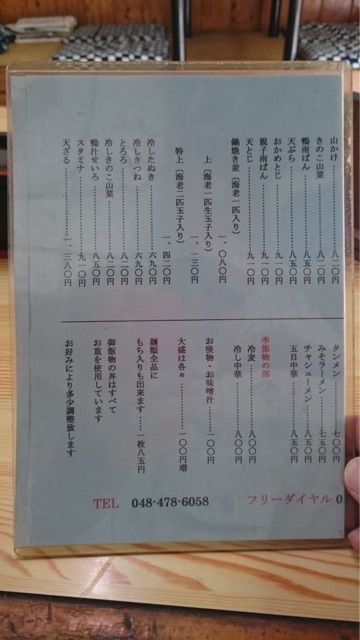 山かけ………八二〇円
きのこ山菜………八二〇円
鴨南ばん………八五〇円
天ぷら………八五〇円
おかめとじ………九一〇円
親子南ばん………九一〇円
天とじ………九一〇円
鍋焼き並(海老一匹入り)
一、〇八〇円
上(海老一匹生玉子入り)
一、一三〇円
特上(海老二匹玉子入り)
一、四二〇円
冷したぬき………六九〇円
冷しきつね………六九〇円
とろろ………八二〇円
冷しきのこ山菜………八二〇円
鴨汁せいろ………八五〇円
スタミナ………九一〇円
天ざる………一、三八〇円
タンメン………七〇〇円
みそラーメン………七五〇円
チャシューメン………八五〇円
五目中華………八五〇円
季節物の部
冷麦………八〇〇円
冷し中華………八〇〇円
お吸物・お味噌汁………一〇〇円
大盛は各々………一〇〇円増
麺類全品に
もち入りも出来ます……一枚八五円
御飯物の丼はすべて
お重を使用しています
お好みにより多少調整致します
TEL 048-478-6058
フリーダイヤル 0